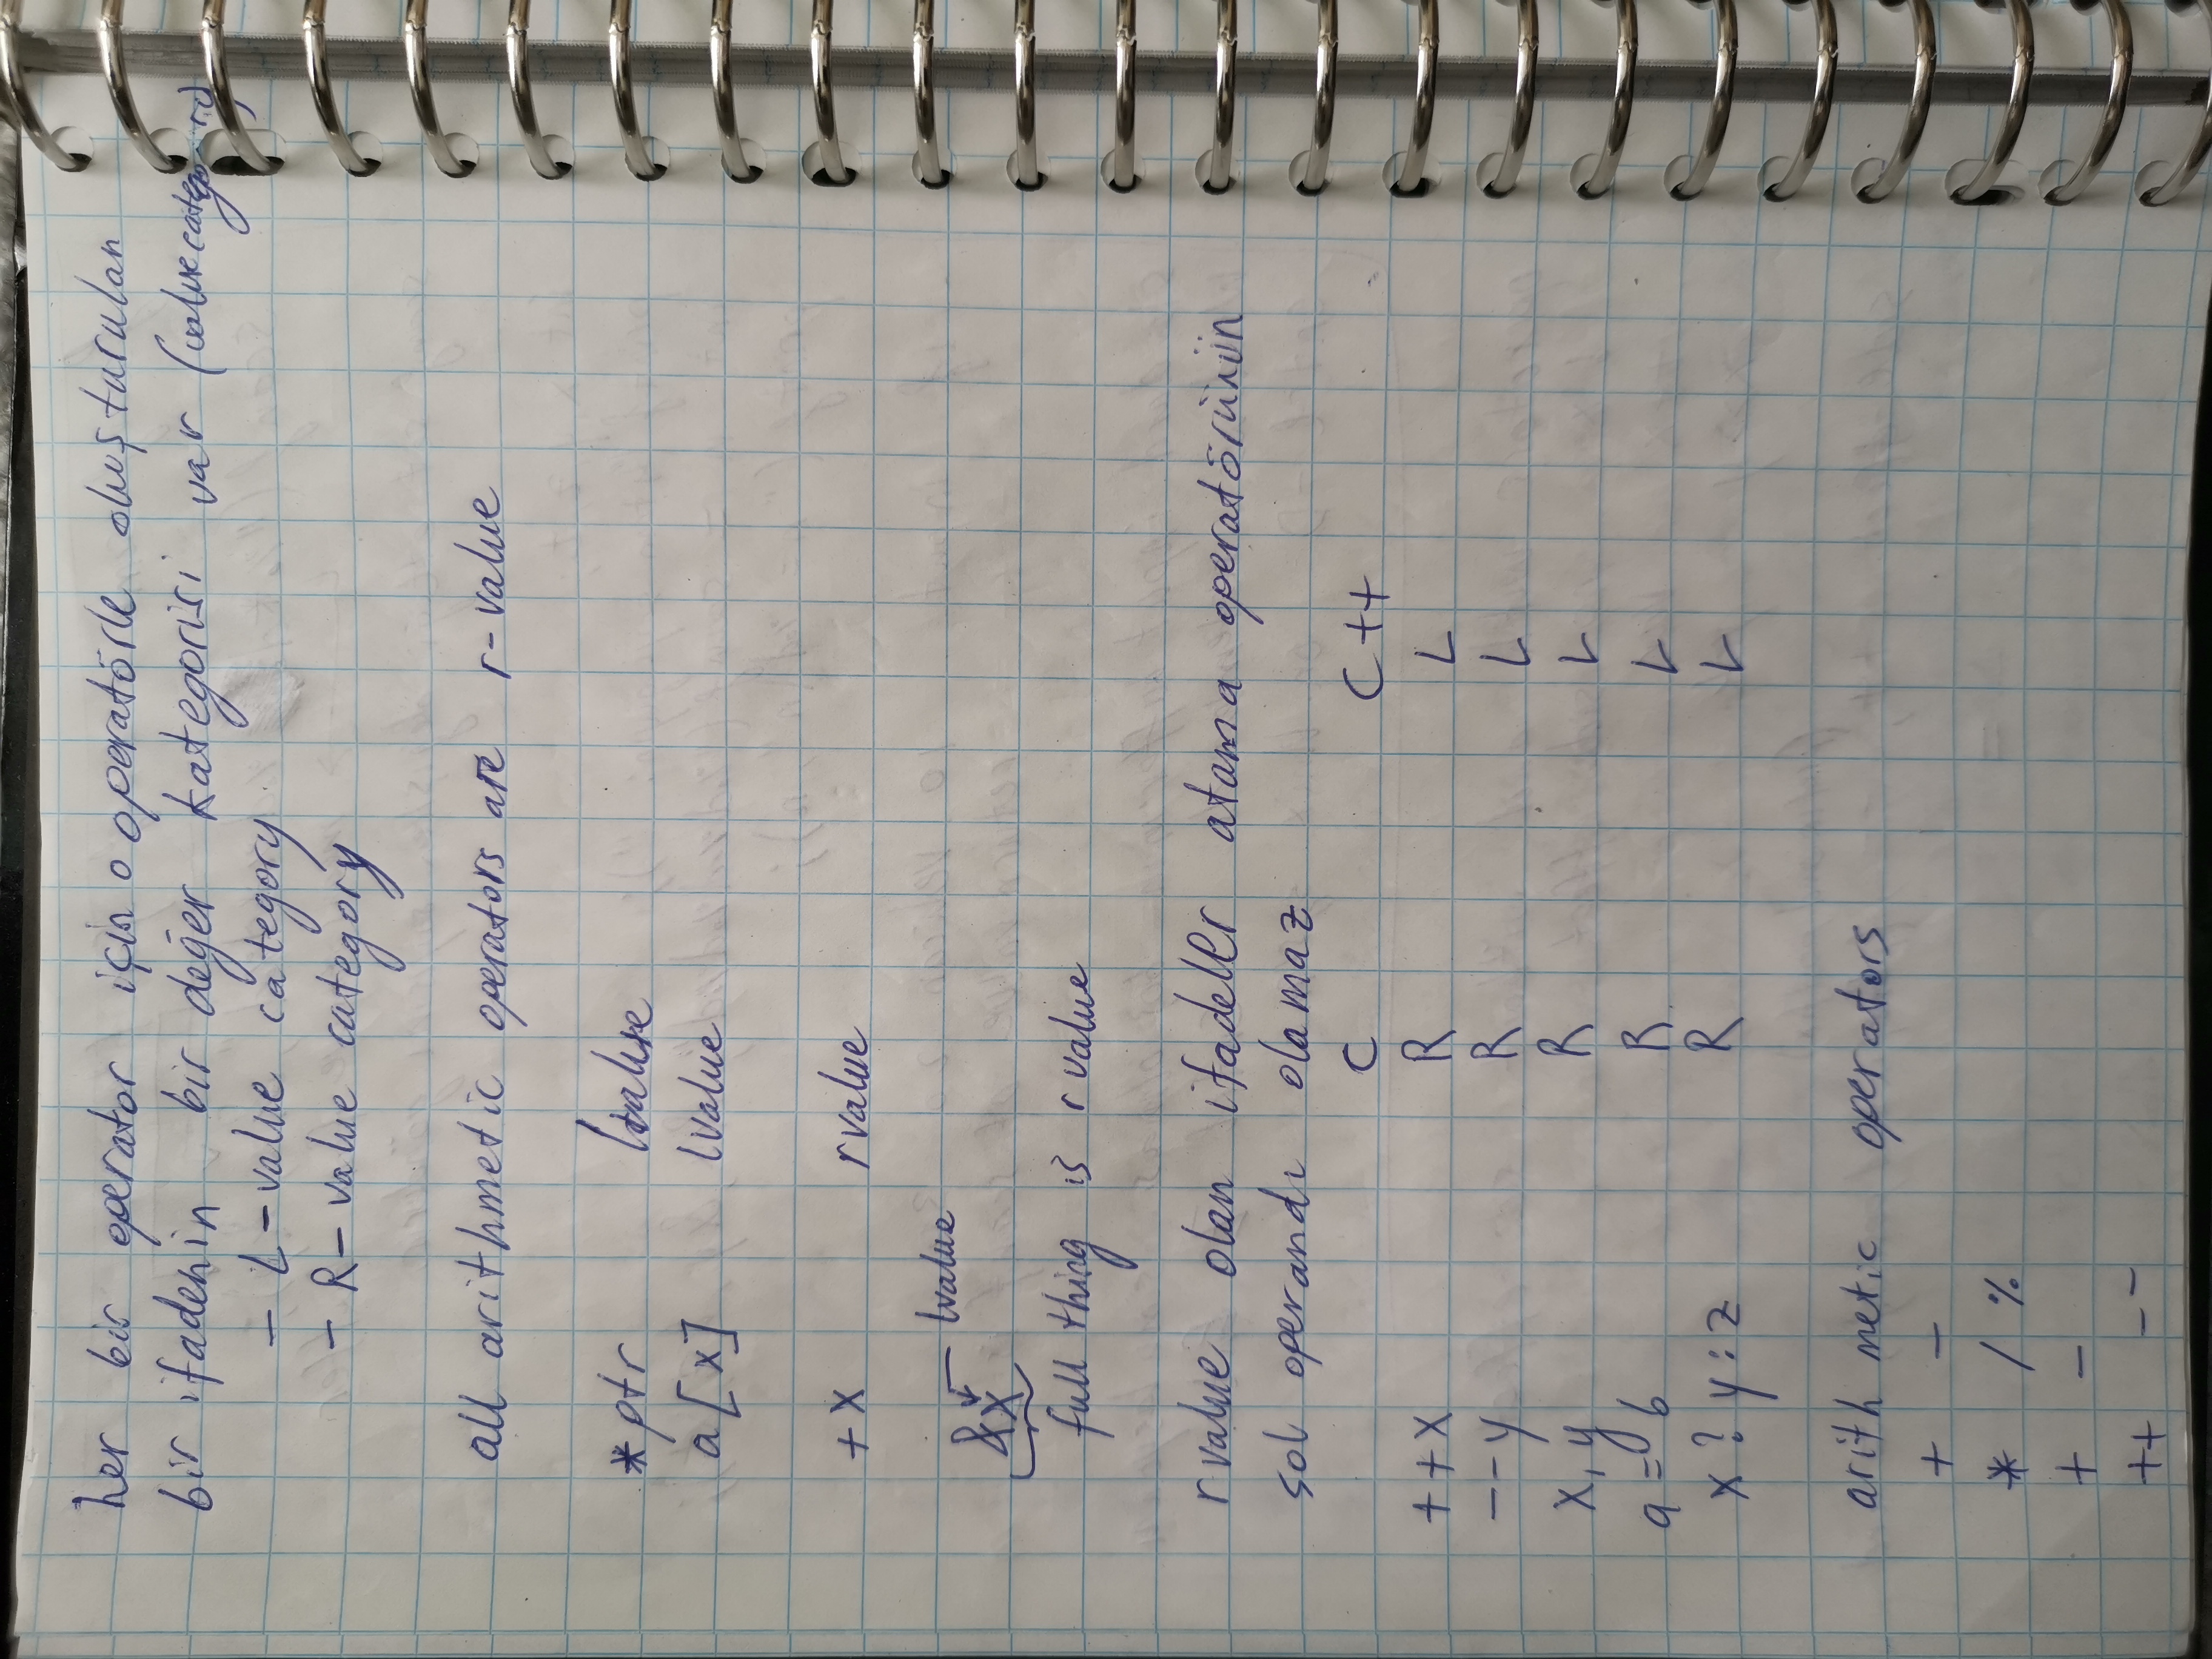 her bir operator için o operatörle oluşturulan
bir ifadenin bir değer kategorisi var (value category)
- L-value category
- R-value category
all arithmetic operators are r-value
*ptr lvalue
a[x] lvalue
+x rvalue
lvalue
&x
full thing is rvalue
rvalue olan ifadeler atama operatörünün
sol operandı olamaz
C C++
++x R L
--y R L
x,y R L
a = b R L
x ? y : z R L
arithmetic operators
+ -
* / %
+ -
++ --